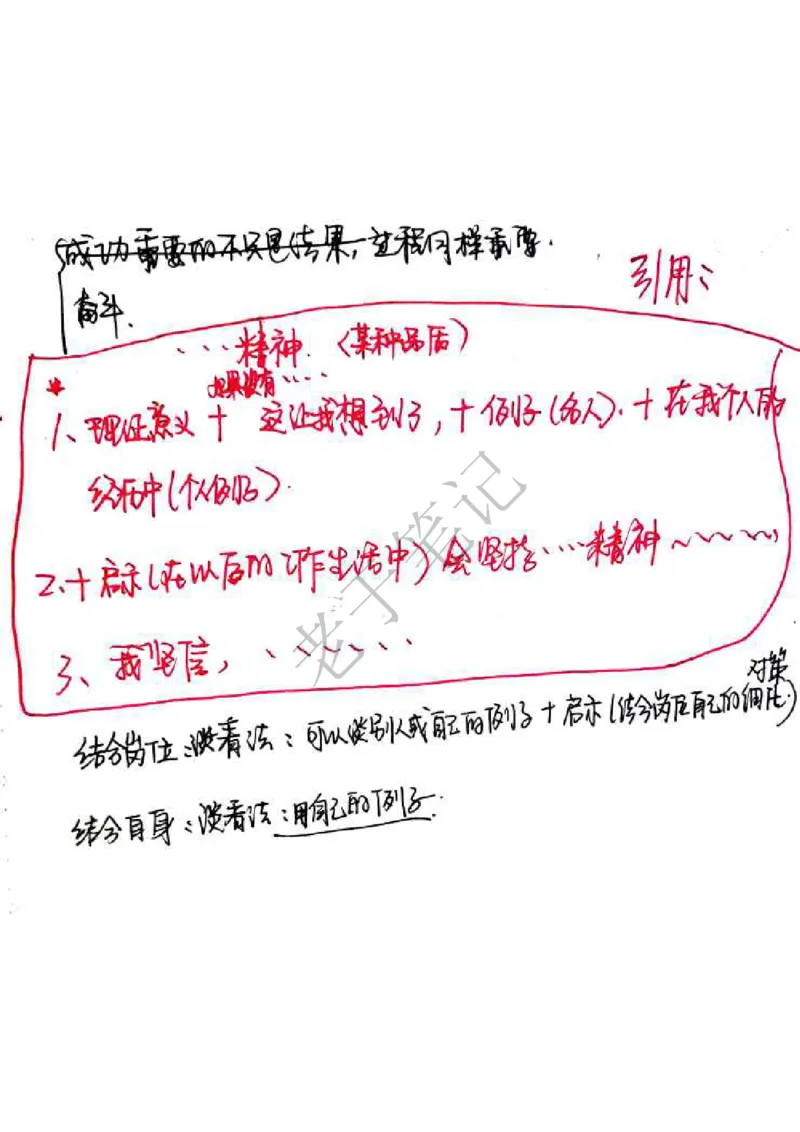 成功需要的不只是结果,过程同样重要.
奋斗.
引用:
····精神.(某种品质)
如果没有····
*
1、理论意义+这让我想到了,+例子(名人).+在我个人的
经历中(个人例子).
2.+启示(在以后的工作生活中)会坚持····精神~~~~~
3、我坚信,······
对策
结合岗位:谈看法:可以谈别人或自己的例子+启示(结合岗位自己的细化.)
结合自身:谈看法:用自己的例子.
老于笔记